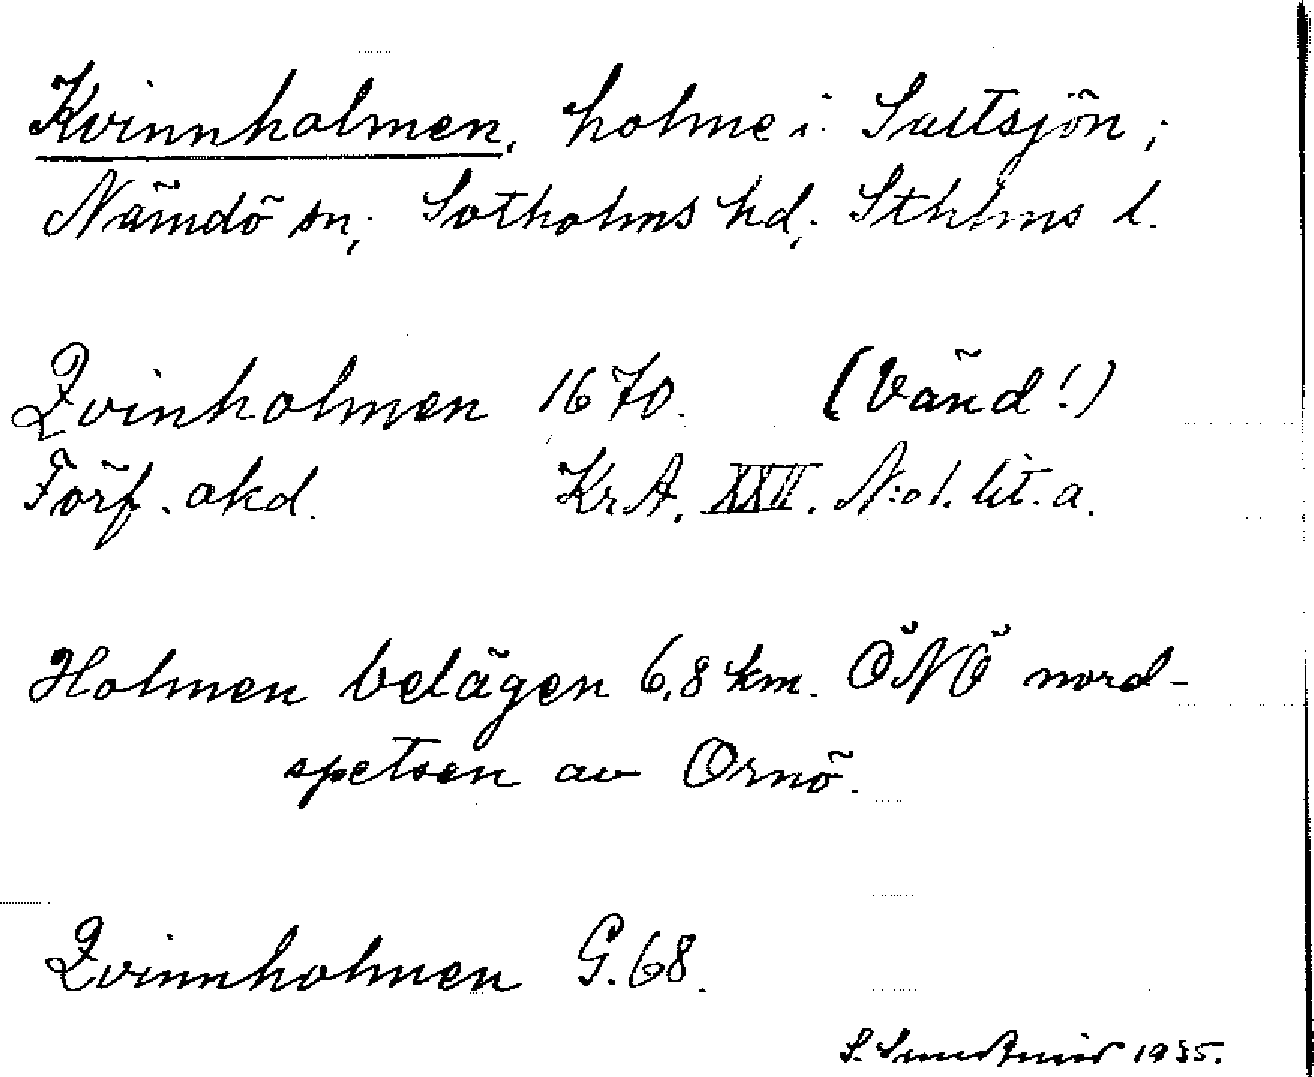 Kvinnholmen, holme i Saltsjön;
Nämdö sn; Sotholms hd; Sthlms l.
Qvinholmen 1670. (Vänd!)
Förf. akd. Kr.A. XXII. N:o 1. lit. a.
Holmen belägen 6,8 km. ÖNÖ nord-
spetsen av Ornö.
Qvinnholmen G. 68.
S. 1935.